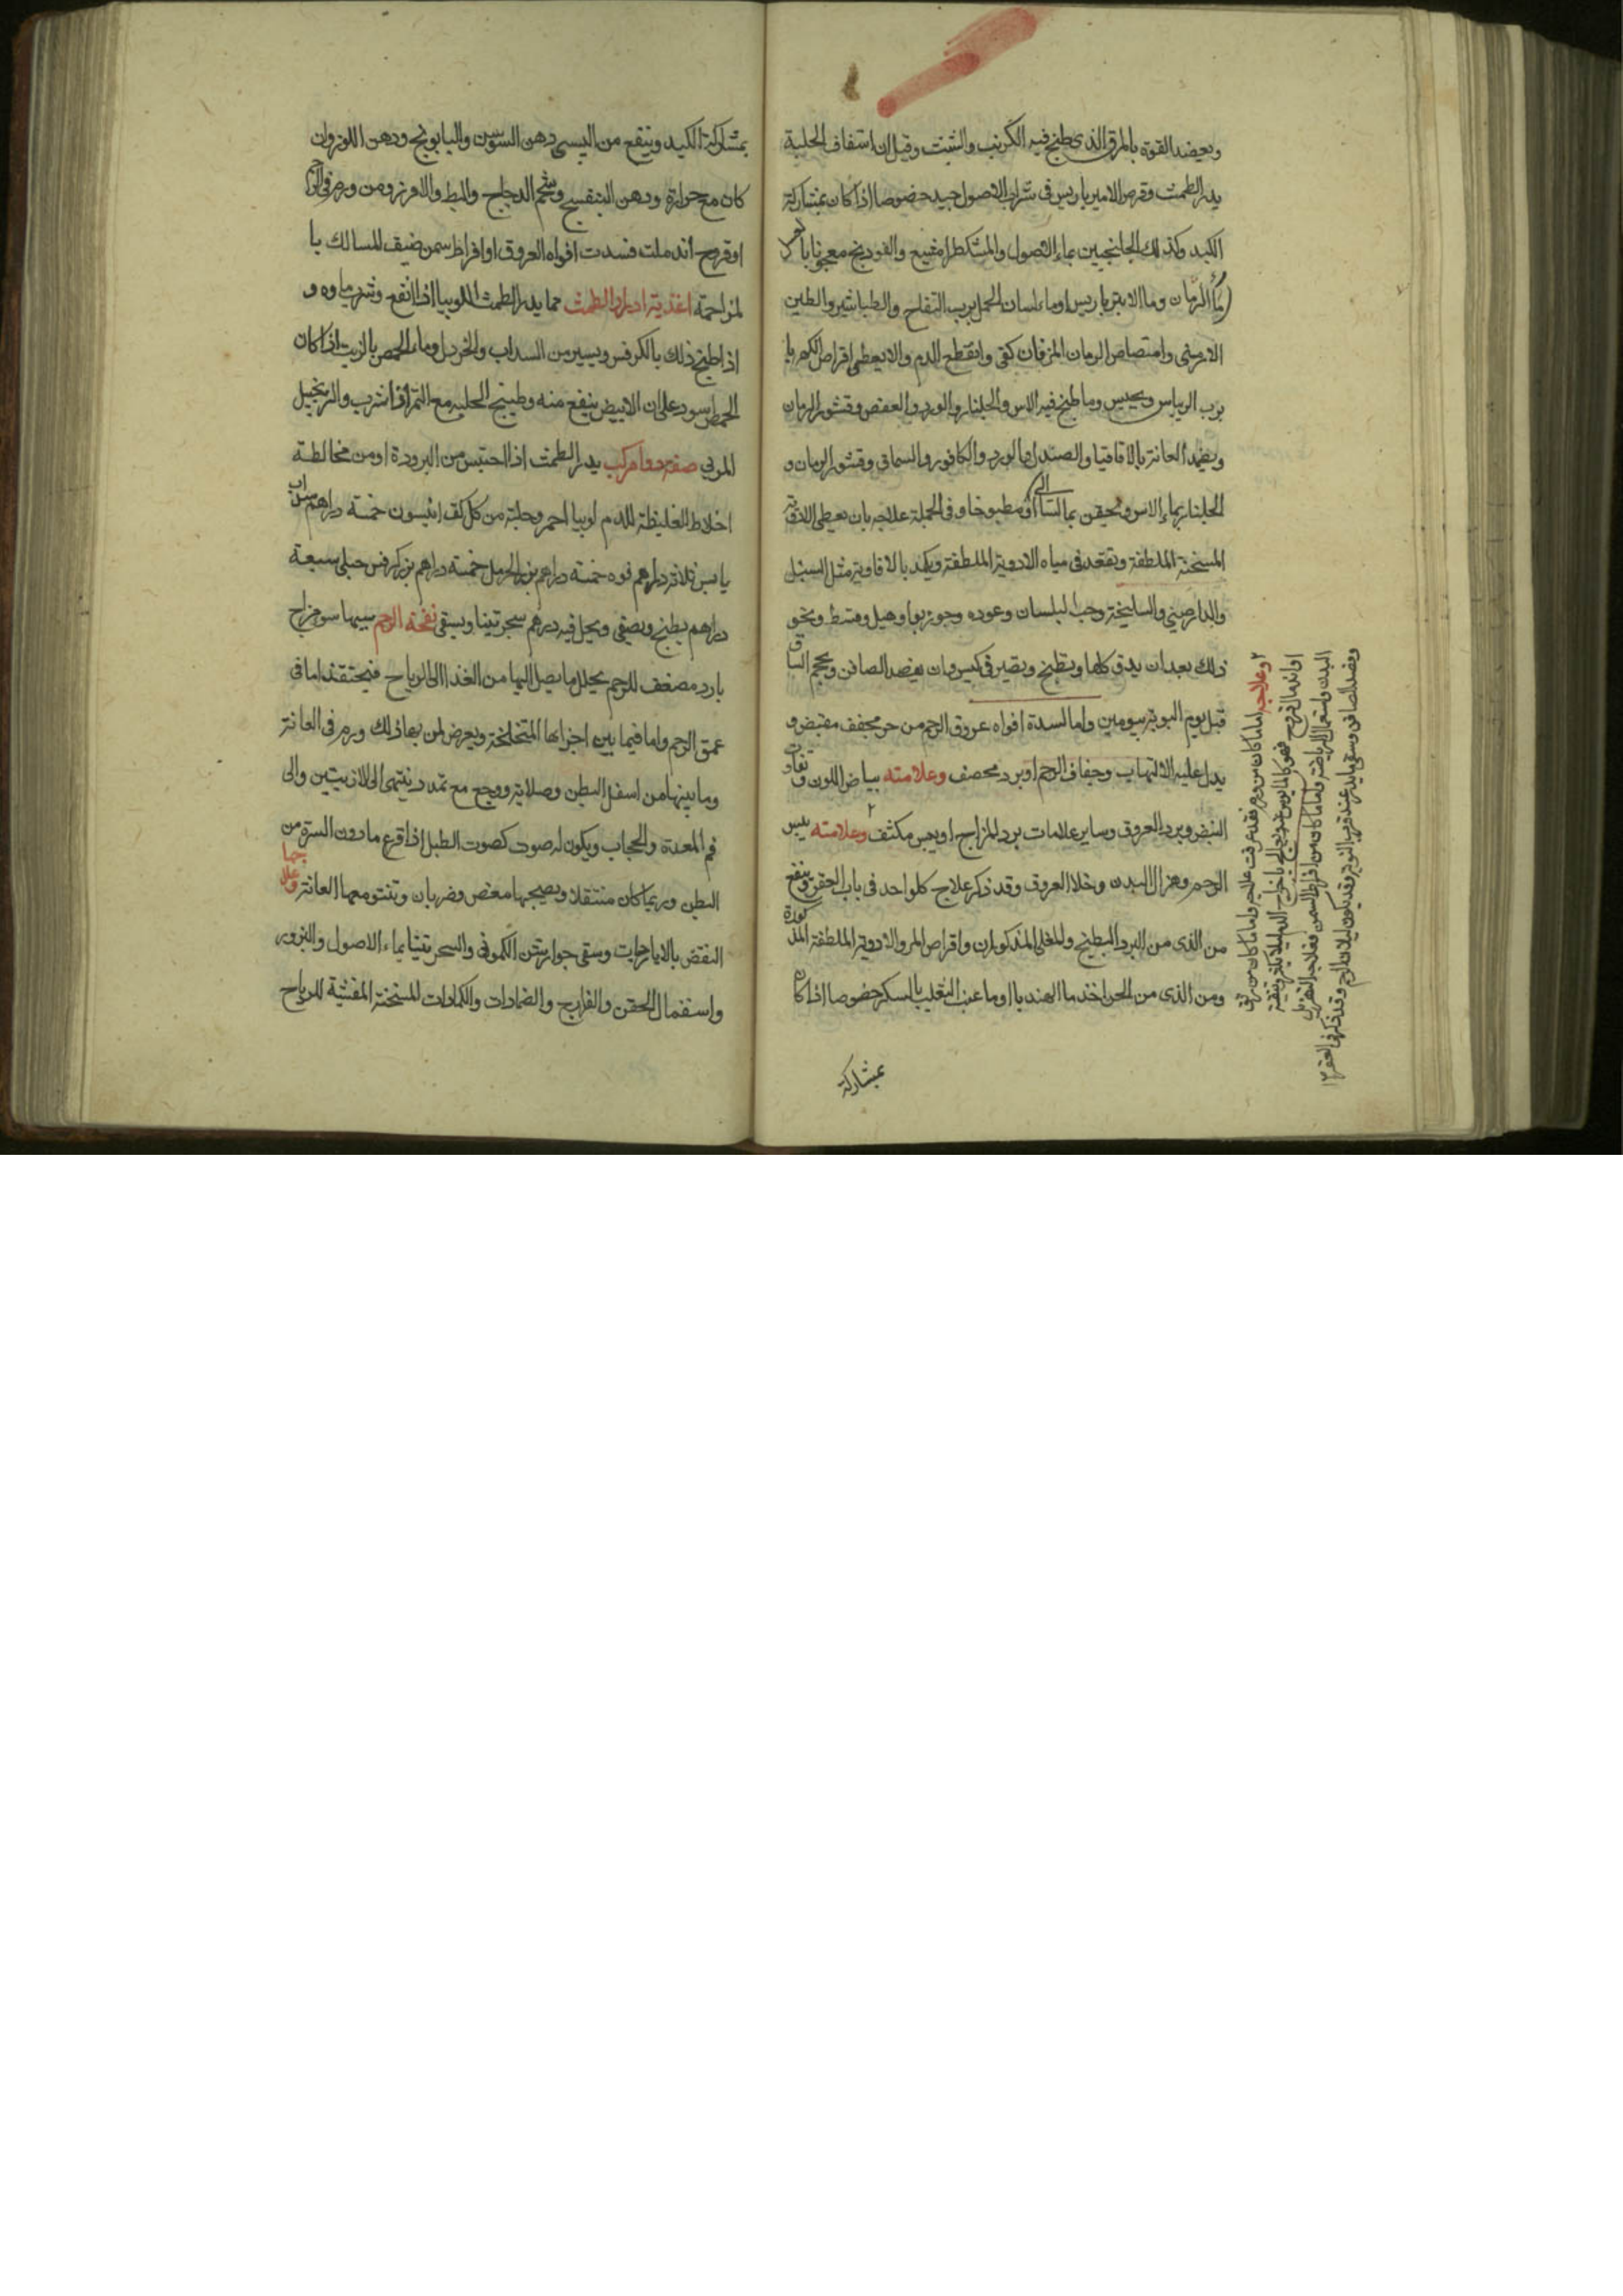 وبعضد القوة بالمرق الذى طبخ فيه الكرنب والشبت وقيل ان استفاف الحلبة
يدر الطمث وقرص الامبرباريس فى شراب الاصول جيد خصوصا اذا كان بمشاركة
الكبد وكذلك الجلنجبين بماء الاصول والمشكطرامشيع والفودنج معجونا
ماء الرمان وماء الانبرباريس اوماء لسان الحمل برب التفاح والطباشير والطين
الارمنى وامتصاص الرمان المز فان كفى وانقطع الدم والا يعطى اقراص الكهربا
برب الريباس ويجلس وما طبخ فيه الاس والجلنار والورد والعفص وقشور الرمان
ويضمد العانة بالاقاقيا والصندل والورد والكافور والسماق وقشور الرمان و
الجلنار بماء الاس ويحقن بما مطبوخا وفى الجملة علاجه بان يعطى الادوية
المسخنة الملطفة وتقعد فى مياه الادوية الملطفة ويكمد بالافاوية مثل السنبل
والدارصينى والسليخة وحب البلسان وعوده وجوزبوا وهيل وقسط ونحو
ذلك بعد ان يدق كلها ويطبخ ويصير فى كيس وان يفصد الصافن ويحجم الساق
قبل يوم النوبة بيومين واما لسدة افواه عروق الرحم من حر مجفف مقبض و
يدل عليه الالتهاب وجفاف الرحم اوبرد محصف وعلامته بياض اللون وتفاوت
النبض وبرد العروق وساير علامات برد المزاج او يبس مكثف وعلامته يبس
الرحم وهزال البدن وخلاء العروق وقد ذكر علاج كل واحد فى باب العقر وينفع
من الذى من البرد البطيخ والخلى المذكوران واقراص المر والادوية الملطفة المذكورة
ومن الذى من الحر اخذ ماء الهندبا اوماء عنب الثعلب بالسكر خصوصا اذا كان
بمشاركة
وعلاجه اما ما كان من ورم فقد عرفت علاجه واما ما كان من رتق
او اندمال قروح فهو كالمايوس
البدن واستعمال الرياضة واما ما كان من افراط السمن فعلاجه التهزيل
وفصد الصافن وسقى ما يدر عند قرب النوبة وقد يكون لميلان الرحم وقد ذكر فى العقر
بمشاركة الكبد وينفع من اليبسى دهن السوسن والبابونج ودهن اللوز وان
كان مع حرارة ودهن البنفسج وشحم الدجاج والبط والاوز ومن ورم فى الرحم
اوقروح اندملت فسدت افواه العروق اوافراط سمن ضيق المسالك با
لمزاحمة اغذية ادرار الطمث مما يدر الطمث اللوبيا اذا انقع وشرب ماوه و
اذا طبخ ذلك بالكرفس ويسير من السداب والخردل وماء الحمص بالزيت اذا كان
الحمص اسود على ان الابيض ينفع منه وطبيخ الحلبه مع التمر اذا شرب والزنجبيل
المربى صفة دوا مركب يدر الطمث اذا احتبس من البرودة اومن مخالطة
اخلاط الغليظة للدم لوبيا احمر وحلبة من كل كف انيسون خمسة دراهم سداب
يابس ثلاثة دراهم فوه خمسة دراهم بزر الحرمل خمسة دراهم بزر كرفس جبلى سبعة
دراهم يطبخ ويصفى ويحل فيه درهم سجرتينا ويسقى نفخة الرحم سببها سو مزاج
بارد مضعف للرحم يحلل ما يصل اليها من الغذا الى الرياح فيحتقن اما فى
عمق الرحم واما فيما بين اجزايها المتخلخلة ويعرض لمن بها ذلك ورم فى العانة
وما بينها من اسفل البطن وصلابة ووجع مع تمدد ينتهى الى الاربيتين والى
فم المعدة والحجاب ويكون له صوت كصوت الطبل اذا قرع ما دون السرة من
البطن وربما كان منتقلا ويصحبها مغص وضربان وتنتو معها العانة وعلاجها
النفض بالايارجات وسقى جوارشن الكمونى والسجرتينا بماء الاصول والبزور
واستعمال الحقن والفرازج والضمادات والكمادات المسخنة المفشية للرياح